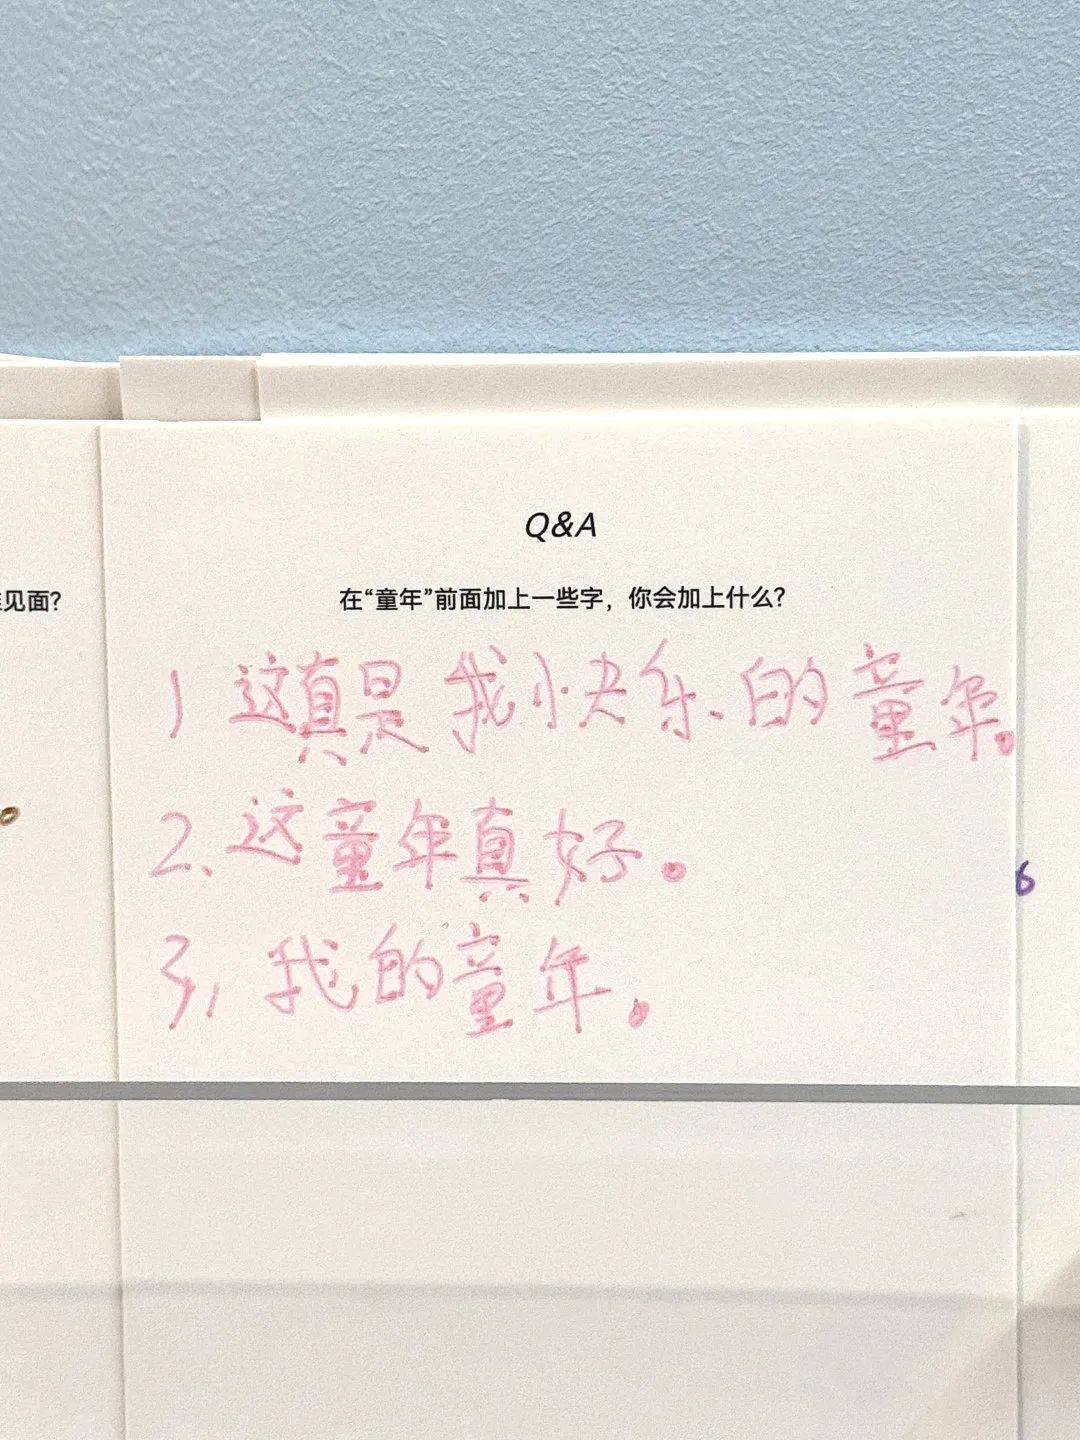 Q&A
见面?
在“童年”前面加上一些字，你会加上什么?
1 这真是我小快乐的童年。
2.这童年真好。
6
3,我的童年。